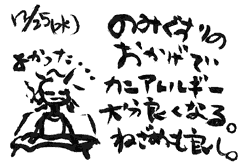 12/25(水)
よかった…
のみぐすりの
おかげで
カニアレルギー
大分良くなる。
ねざめも良し。